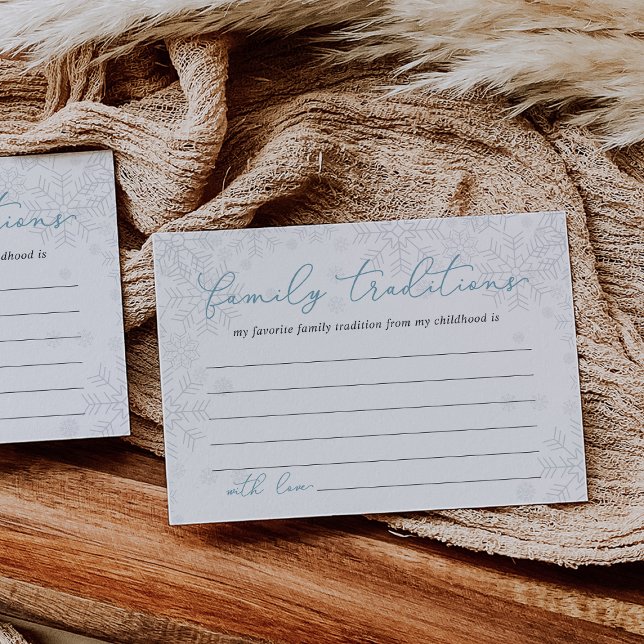 family traditions
my favorite family tradition from my childhood is
with love